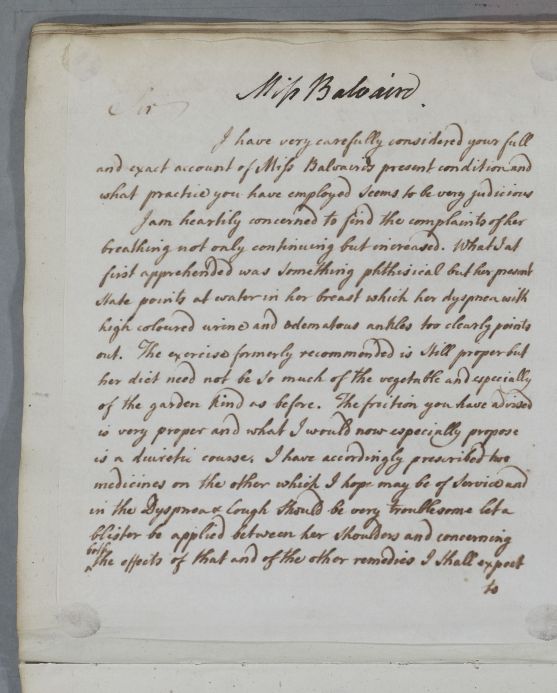 Miss Balvaird.
Sir
I have very carefully considered your full
and exact account of Miss Balvairds present condition and
what practice you have employed seems to be very judicious
I am heartily concerned to find the complaints of her
breathing not only continuing but increased. What I at
first apprehended was something phthisical but her present
state points at water in her breast which her dyspnea with
high coloured urine and Œdematous ankles too clearly points
out. The exercise formerly recommended is still proper but
her diet need not be so much of the vegetable and especially
of the garden kind as before. The friction you have advised
is very proper and what I would now especially propose
is a diuretic course. I have accordingly prescribed two
medicines on the other which I hope may be of service and
in the Dyspnea & Cough should be very troublesome let a
blister be applied between her shoulders and concerning
both
the effects of that and of the other remedies I shall expect
to